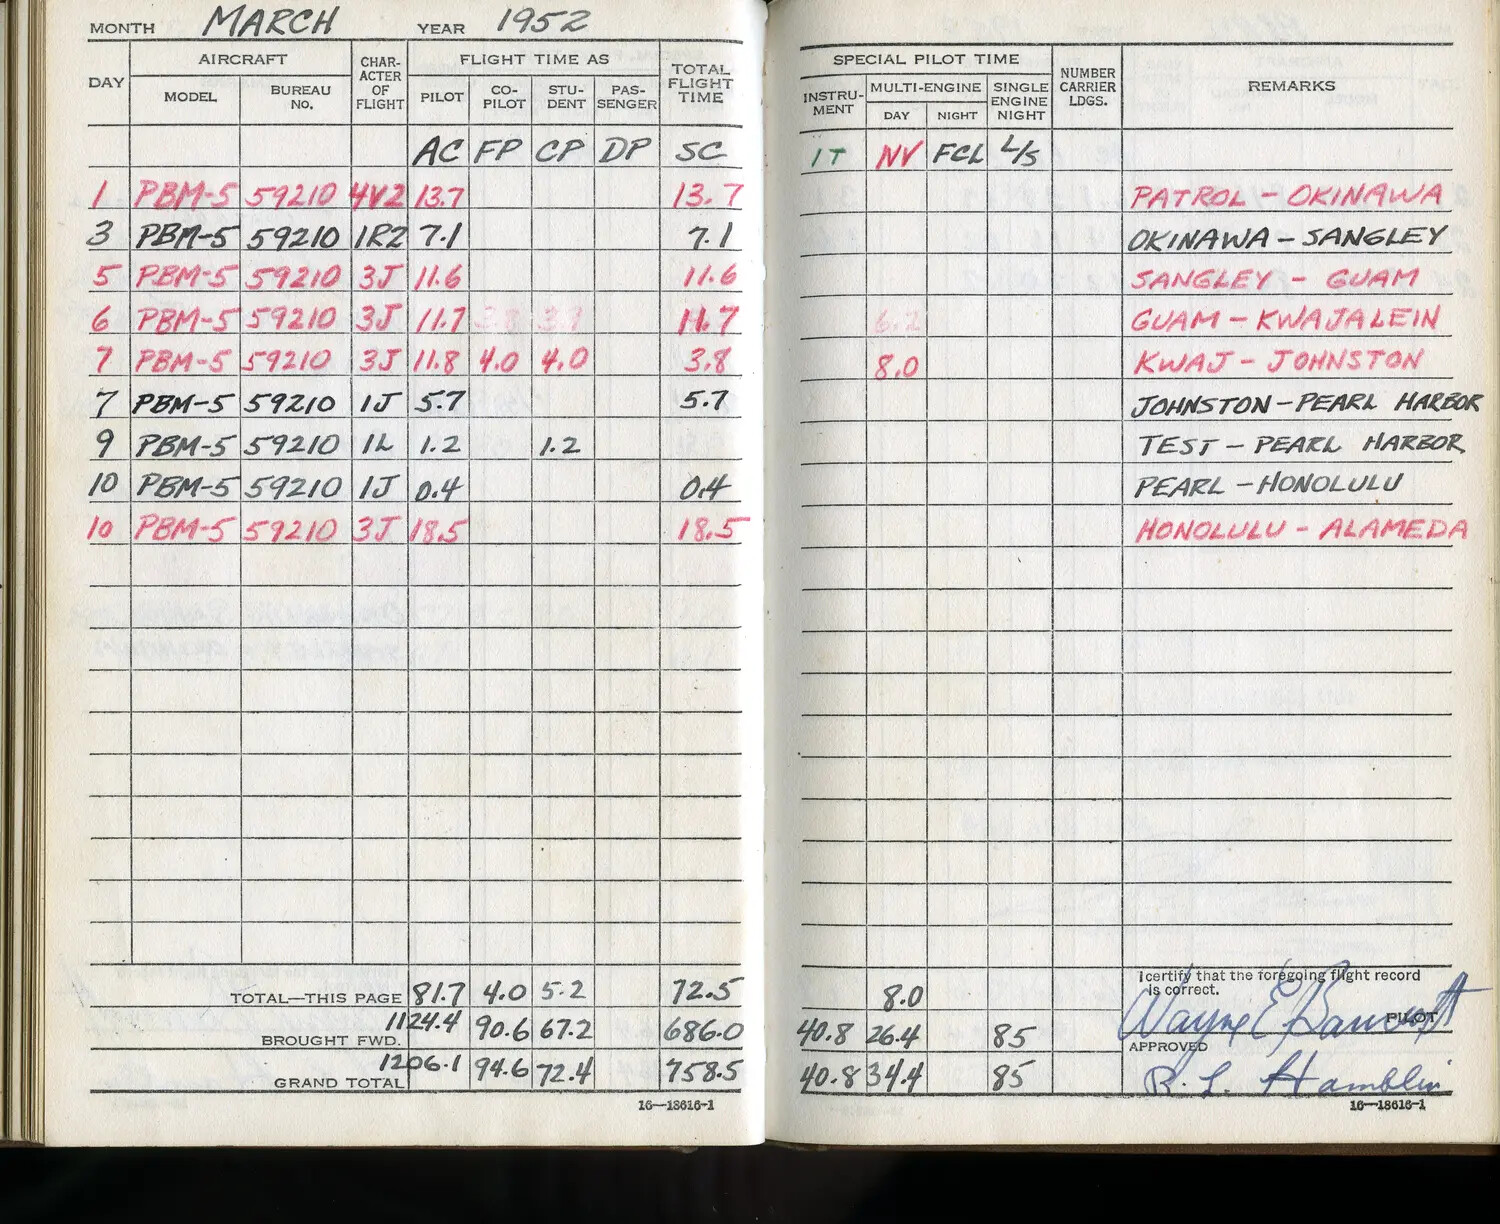 MONTH MARCH YEAR 1952
DAY AIRCRAFT CHARACTER OF FLIGHT FLIGHT TIME AS TOTAL FLIGHT TIME
MODEL BUREAU NO. PILOT CO-PILOT STU-DENT PAS-SENGER
AC FP CP DP SC
1 PBM-5 59210 4V2 13.7 13.7
3 PBM-5 59210 1R2 7.1 7.1
5 PBM-5 59210 3J 11.6 11.6
6 PBM-5 59210 3J 11.7 3.8 3.9 11.7
7 PBM-5 59210 3J 11.8 4.0 4.0 3.8
7 PBM-5 59210 1J 5.7 5.7
9 PBM-5 59210 1L 1.2 1.2
10 PBM-5 59210 1J 0.4 0.4
10 PBM-5 59210 3J 18.5 18.5
TOTAL—THIS PAGE 81.7 4.0 5.2 72.5
BROUGHT FWD. 1124.4 90.6 67.2 686.0
GRAND TOTAL 1206.1 94.6 72.4 758.5
16—18616-1
SPECIAL PILOT TIME NUMBER CARRIER LDGS. REMARKS
INSTRU-MENT MULTI-ENGINE SINGLE ENGINE NIGHT
DAY NIGHT
IT NV FCL L/S
PATROL - OKINAWA
OKINAWA - SANGLEY
SANGLEY - GUAM
6.2 GUAM - KWAJALEIN
8.0 KWAJ - JOHNSTON
JOHNSTON - PEARL HARBOR
TEST - PEARL HARBOR
PEARL - HONOLULU
HONOLULU - ALAMEDA
I certify that the foregoing flight record
is correct.
8.0
Wayne E Bancroft PILOT
40.8 26.4 85
APPROVED
40.8 34.4 85 R. L. Hamblin
16—18616-1